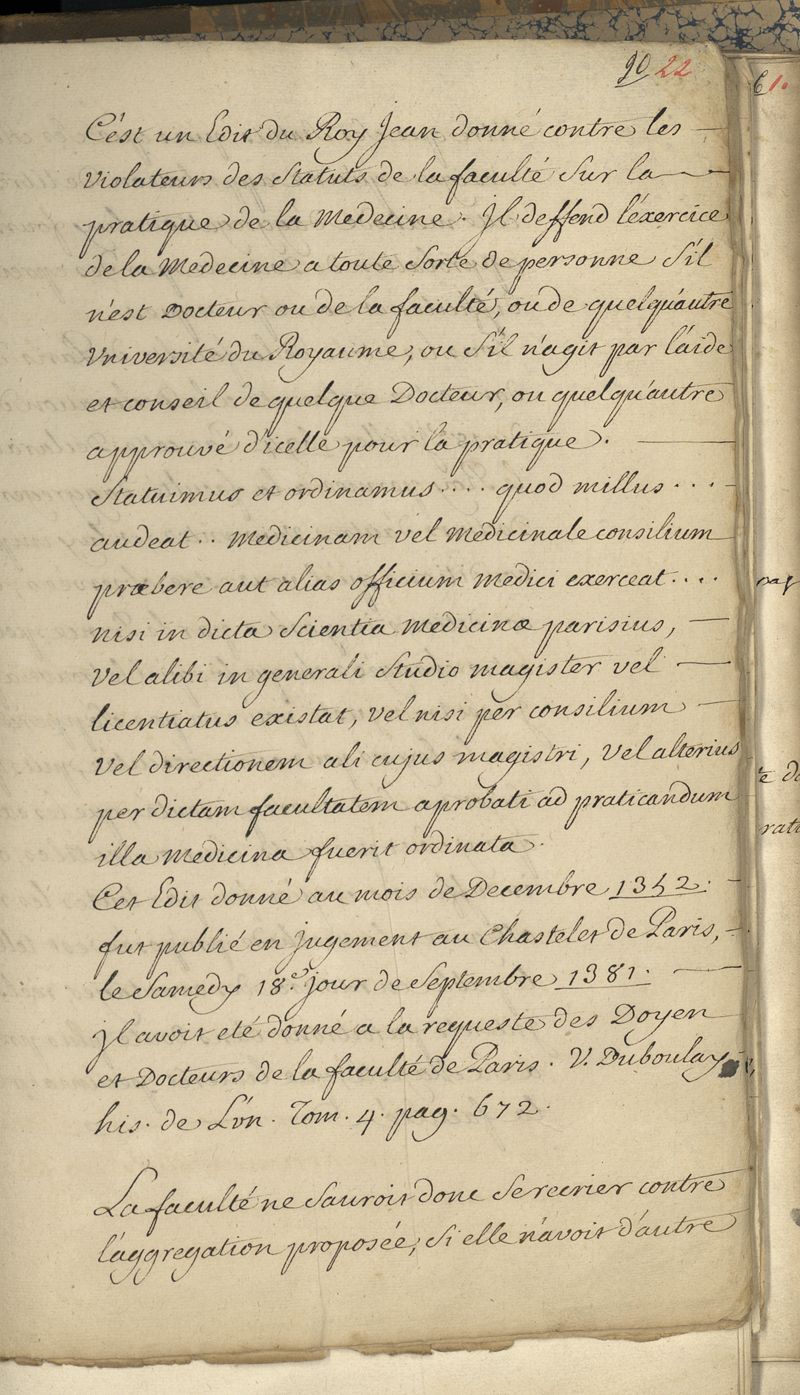 90 22
C'ést un Edit du Roy Jean donné contre les
violateurs des Statuts de la faculté sur la
pratique de la Medecine. Jl deffend l'éxercice
de la Medecine a toute sorte de personne s'il
n'est Docteur ou de la faculté, ou de quelqu'autre
Université du Royaume, ou s'il n'agit par l'aide
et conseil de quelque Docteur, ou quelqu'autre
approuvé d'icelle pour la pratique.
Statuimus et ordinamus.... quod millus...
audeat.. Medicinam vel Medicinale consilium
præbere aut alias officium Medici exerceat....
nisi in dicta Scientia Medicinæ parisius,
vel alibi in generali Studio magister vel
licentiatus existat, vel nisi per consilium
vel directionem ali cujus magistri, vel alterius
per dictam facultatem aprobati ad praticandum
illa Medicina fuerit ordinata.
Cet Edit donné au mois de Decembre 1352.
fut publié en jugement au Chastelet de Paris,
le Samedy 18.e jour de Septembre 1381.
Jl avoit eté donné a la requeste des Doyen
et Docteurs de la faculté de Paris. V. Duboulay
his. de L'Un. Tom. 4. pag. 672.
La faculté ne sauroit donc se recrier contre
l'aggregation proposée, si elle n'avoit d'autre
61.